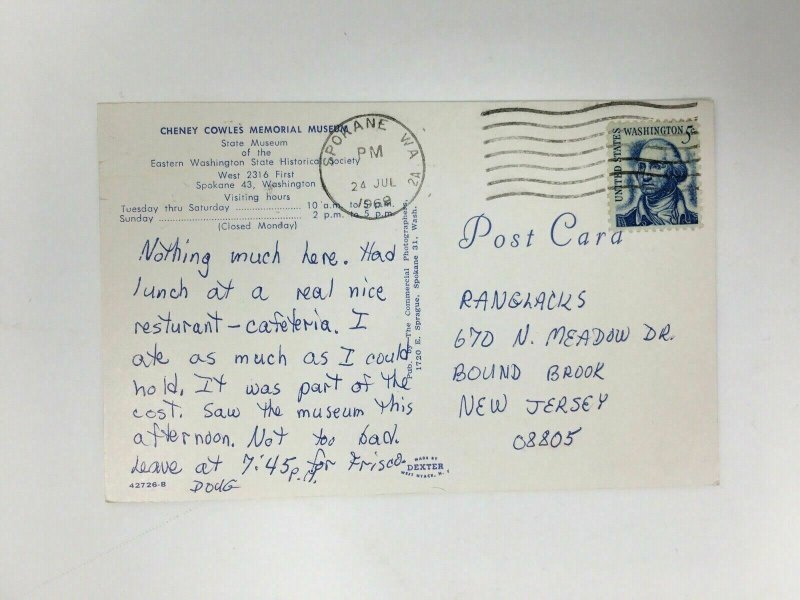 CHENEY COWLES MEMORIAL MUSEUM
State Museum
of the
Eastern Washington State Historical Society
West 2316 First
Spokane 43, Washington
Visiting hours
Tuesday thru Saturday .................... 10 a.m. to 5 p.m.
Sunday .................... 2 p.m. to 5 p.m.
(Closed Monday)
SPOKANE WA
PM
24 JUL
1968
2A
UNITED STATES
WASHINGTON 5¢
Nothing much here. Had
lunch at a real nice
resturant-cafeteria. I
ate as much as I could
hold. It was part of the
cost. Saw the museum this
afternoon. Not too bad.
Leave at 7:45 P.M. for Frisco.
DOUG
42726-B
Pub. by The Commercial Photographers,
1720 E. Sprague, Spokane 31, Wash.
MADE BY
DEXTER
WEST NYACK, N. Y.
Post Card
RANGLACKS
670 N. MEADOW DR.
BOUND BROOK
NEW JERSEY
08805